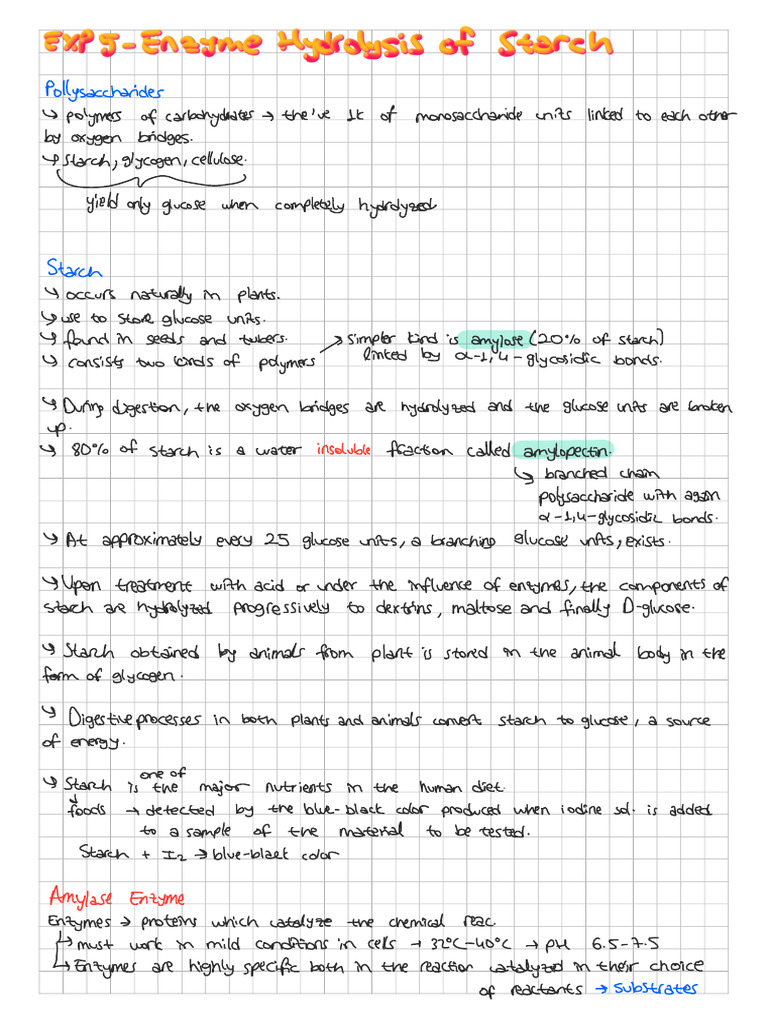 EXP 5-Enzyme Hydrolysis of Starch
Pollysaccharides
↳ polymers of carbohydrates → the've 1k of monosaccharide units linked to each other
by oxygen bridges.
↳ starch, glycogen, cellulose.
yield only glucose when completely hydrolyzed
Starch
↳ occurs naturally in plants.
↳ use to store glucose units.
↳ found in seeds and tubers.
↳ consists two kinds of polymers
→ simpler kind is amylose (20% of starch)
linked by α-1,4-glycosidic bonds.
↳ During digestion, the oxygen bridges are hydrolyzed and the glucose units are broken
up.
↳ 80% of starch is a water insoluble fraction called amylopectin.
↳ branched chain
polysaccharide with again
α-1,4-glycosidic bonds.
↳ At approximately every 25 glucose units, a branching glucose units, exists.
↳ Upon treatment with acid or under the influence of enzymes, the components of
starch are hydrolyzed progressively to dextrins, maltose and finally D-glucose.
↳ Starch obtained by animals from plant is stored in the animal body in the
form of glycogen.
↳ Digestive processes in both plants and animals convert starch to glucose, a source
of energy.
↳ Starch is one of the major nutrients in the human diet.
foods → detected by the blue-black color produced when iodine sol. is added
to a sample of the material to be tested.
Starch + I2 → blue-black color
Amylase Enzyme
Enzymes → proteins which catalyze the chemical reac.
↳ must work in mild conditions in cells → 32°C-40°C → pH 6.5-7.5
↳ Enzymes are highly specific both in the reaction catalyzed in their choice
of reactants → substrates